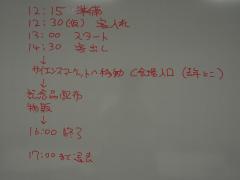 12:15 準備
12:30(仮) 客入れ
13:00 スタート
14:30 客出し
↓
サイエンスマーケットへ移動 (会場入口 (去年とこ)
↓
記念品配布
物販
↓
16:00 終了
17:00まで退去